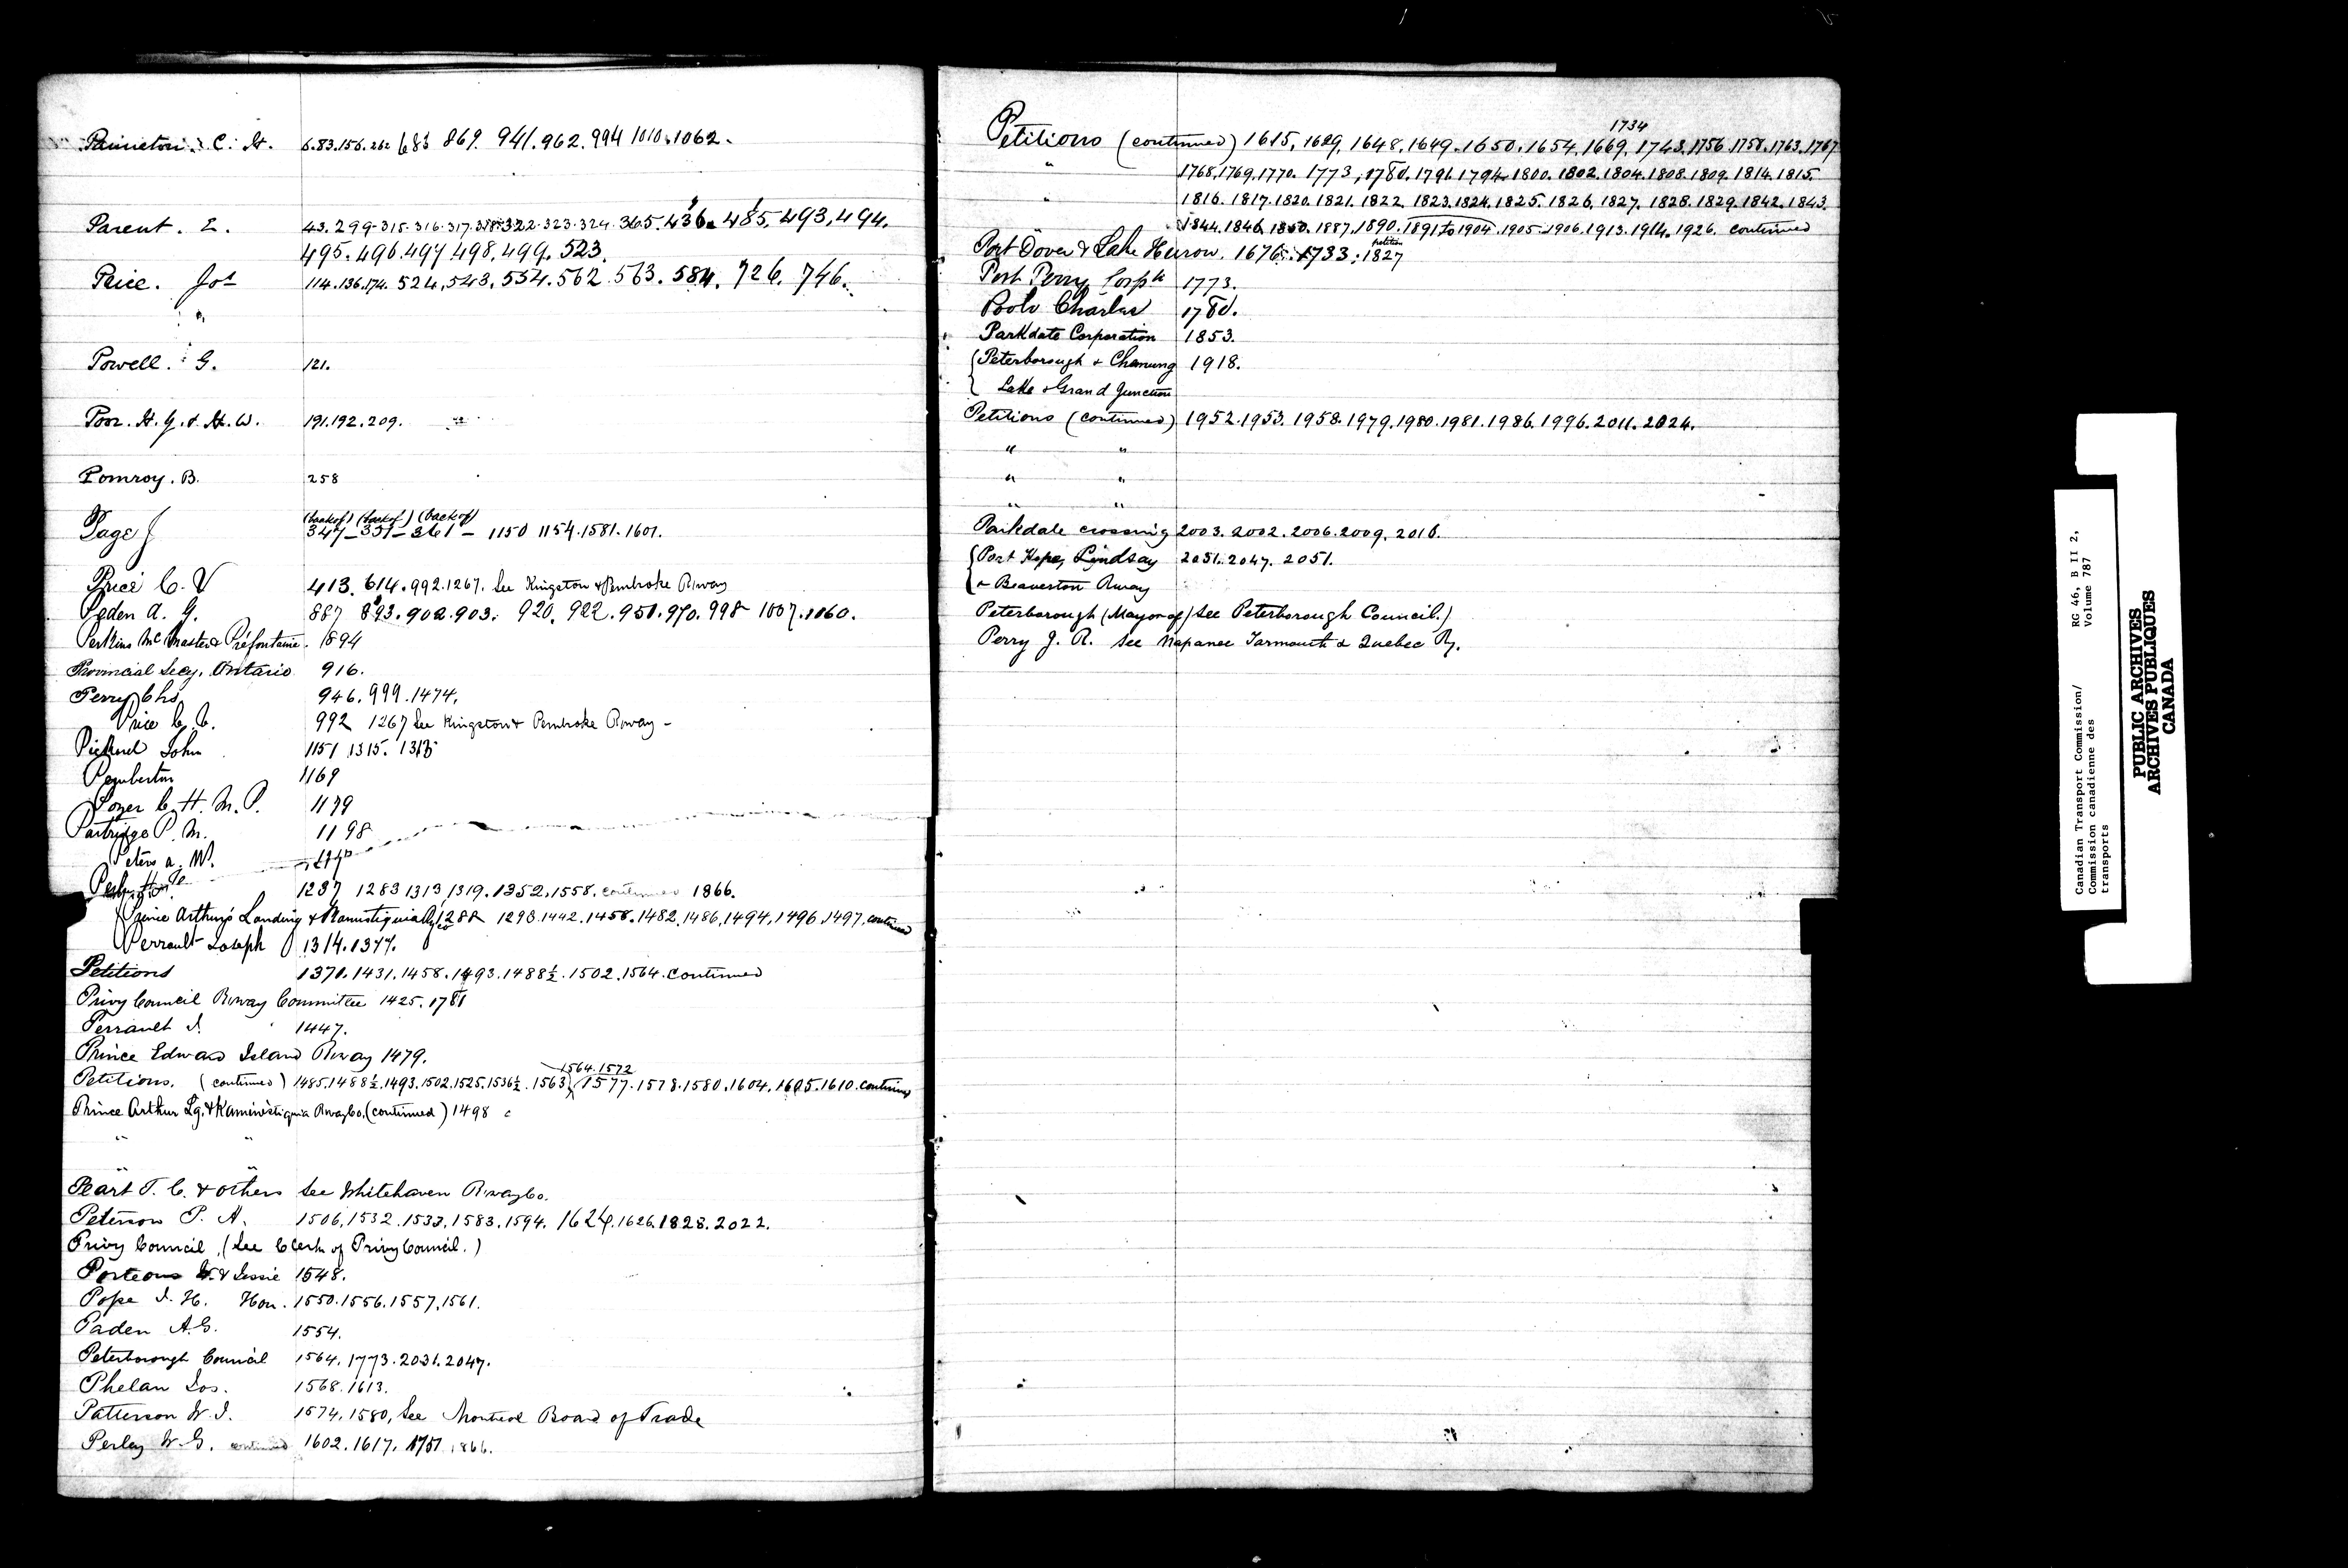 C. H. 6. 83. 156. 262 683 869. 941. 962. 994 1010. 1062.
Parent. E. 43. 299. 315. 316. 317. 318. 322. 323. 324. 365. 436. 485. 493, 494.
495. 496. 497. 498. 499. 523.
Price. Jos 114. 136. 174. 524, 543, 554. 562. 563. 584. 726. 746.
"
Powell. G. 121.
Poor. H. G. & H. W. 191. 192. 209.
Pomroy. B. 258
(back of) (back of) (back of)
Page J 347 – 351 – 361 – 1150 1154. 1581. 1601.
Price C. V 413. 614. 992. 1267. See Kingston & Pembroke Rway
Peden A. G. 887 893. 902. 903. 920. 922. 951. 970. 998 1007. 1060.
Perkins McMaster & Préfontaine. 1894
Provincial Secy, Ontario 916.
Perry Chs 946. 999. 1474.
Price C. C. 992 1267 See Kingston & Pembroke Rway –
John 1151 1315.
Pemberton 1169
C. H. M. P. 1179
Partridge P. M. 1198
Peters A. W.
1237 1283 1313, 1319. 1352, 1558. continued 1866.
Prince Arthur's Landing & Kamistiquia Ry Co 1288 1298. 1442. 1458. 1482. 1486, 1494, 1496. 1497. continued
Perrault Joseph 1314. 1377.
Petitions 1371. 1431. 1458. 1493. 1488½. 1502. 1564. continued
Privy Council Rway Committee 1425. 1781
Perrault J. 1447.
Prince Edward Island Rway 1479.
1564. 1572
Petitions. (continued) 1485. 1488½. 1493. 1502. 1525. 1536½. 1563 1577. 1578. 1580. 1604. 1605. 1610. continued
Prince Arthur Lg. & Kaministiquia Rway Co. (continued) 1498
" "
" "
Peart T. C. & others See Whitehaven Rway Co.
Peterson P. A. 1506, 1532. 1533, 1583. 1594. 1624. 1626. 1828. 2022.
Privy Council, (See Clerk of Privy Council.)
Porteous W. & Jessie 1548.
Pope J. H. Hon. 1550. 1556. 1557. 1561.
Paden A. G. 1554.
Peterborough Council 1564. 1773. 2031. 2047.
Phelan Jos. 1568. 1613.
Patterson W. J. 1574, 1580, See Montreal Board of Trade
Perley W. G. continued 1602. 1617. 1751 1866.
1734
Petitions (continued) 1615, 1629, 1648, 1649. 1650. 1654. 1669. 1743. 1756. 1758. 1763. 1767
" 1768. 1769. 1770. 1773, 1780. 1791. 1794. 1800. 1802. 1804. 1808. 1809. 1814. 1815.
" 1816. 1817. 1820. 1821. 1822. 1823. 1824. 1825. 1826. 1827. 1828. 1829. 1842. 1843.
1844. 1846. 1850. 1887. 1890. 1891 to 1904. 1905. 1906. 1913. 1914. 1926. continued
petition
Port Dover & Lake Huron. 1676. 1733. 1827
Port Perry Corpn 1773.
Charles 1780.
Parkdale Corporation 1853.
Peterborough & Chemung 1918.
Lake & Grand Junction
Petitions (continued) 1952. 1953. 1958. 1979. 1980. 1981. 1986. 1996. 2011. 2024.
" "
" "
" "
Parkdale crossing 2003. 2002. 2006. 2009. 2016.
Port Hope, Lindsay 2031. 2047. 2051.
& Beaverton Rway
Peterborough (Mayor of) See Peterborough Council.)
Perry J. R. See Napanee Tamworth & Quebec Ry.
Canadian Transport Commission/
Commission canadienne des
transports
RG 46, B II 2,
Volume 787
PUBLIC ARCHIVES
ARCHIVES PUBLIQUES
CANADA